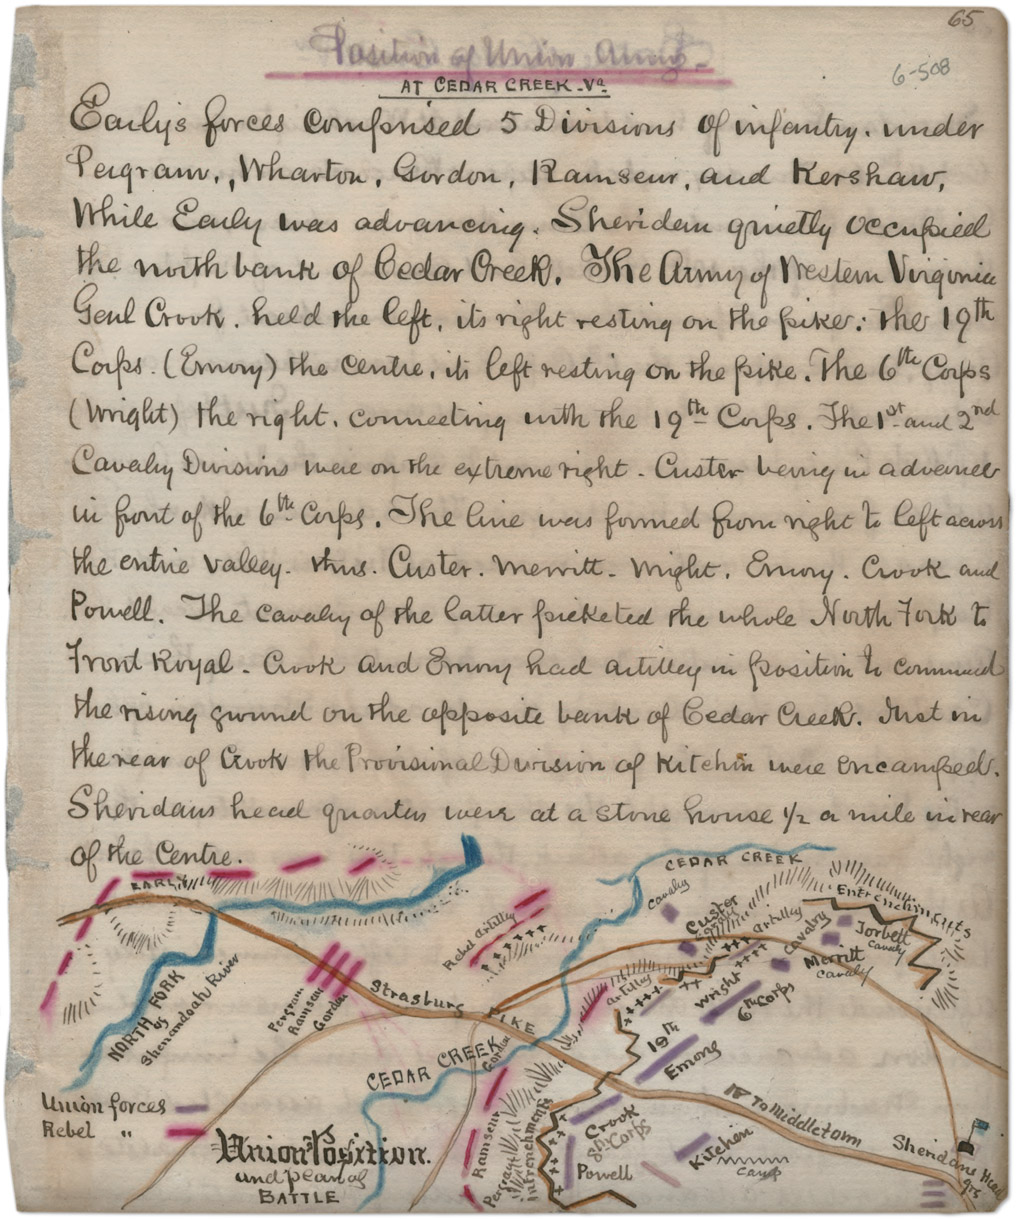 65
Position of Union Army.
6-508
AT CEDAR CREEK. Va
Early's forces comprised 5 Divisions of infantry. under
Pegram., Wharton, Gordon, Ramseur, and Kershaw,
While Early was advancing. Sheridan quietly occupied
the north bank of Cedar Creek. The Army of Western Virginia
Genl Crook. held the left, its right resting on the pike: the 19th
Corps. (Emory) the centre, its left resting on the pike. The 6th Corps
(Wright) the right, connecting with the 19th Corps. The 1st and 2nd
Cavalry Divisions were on the extreme right - Custer being in advance
in front of the 6th Corps. The line was formed from right to left across
the entire valley. thus. Custer. Merritt. Wright. Emory. Crook and
Powell. The cavalry of the latter picketed the whole North Fork to
Front Royal. Crook and Emory had artilley in position to command
the rising ground on the opposite bank of Cedar Creek. Just in
the rear of Crook the Provisional Division of Kitchin were encamped.
Sheridans head quarters were at a stone house 1/2 a mile in rear
of the Centre.
EARLY
CEDAR CREEK
Entrenchments
Cavalry
Custer
Cavalry
artilley
Cavalry
Torbett
Cavaly
Merritt
Cavaly
Rebel artilley
artilley
Wright
6th Corps
NORTH FORK
of
Shenandoah River
Pergram
Ramseur
Gordon
Strasburg PIKE
19th
Emory
CEDAR CREEK
Gordon
Union forces
Rebel "
To Middletown
Crook
8th Corps
Kitchen
Camp
Sheridans Head
qrs
Ramseur
Pergram
Intrenchments
Powell
Union Position.
and plan of
BATTLE